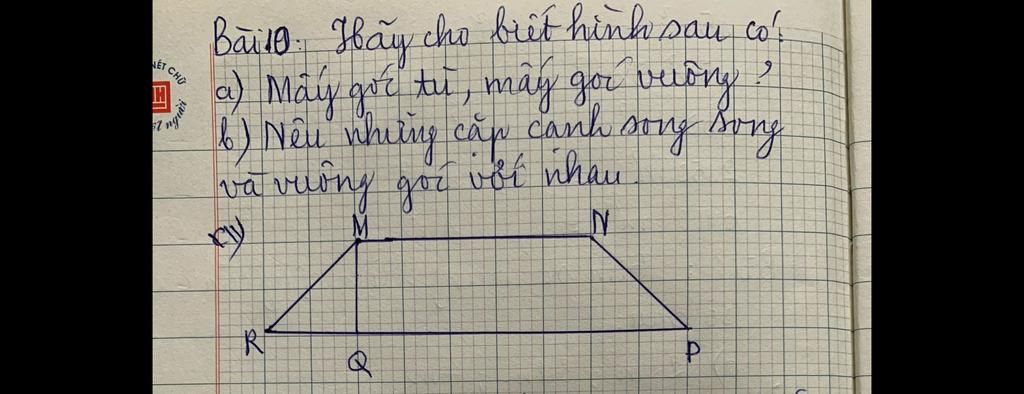 Bài 10: Hãy cho biết hình sau có:
a) Mấy góc tù, mấy góc vuông?
b) Nêu những cặp cạnh song song
và vuông góc với nhau.
M N
R Q P
VIẾT CHỮ
H
người